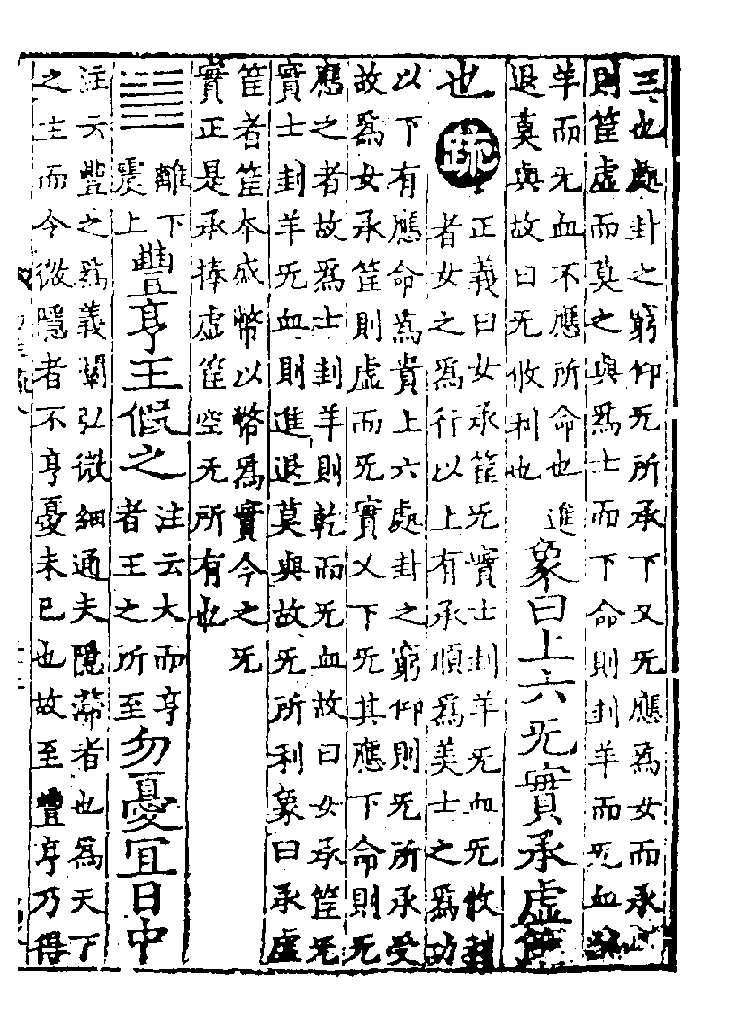 三也處卦之窮仰无所承下又无應爲女而承
則筐虛而莫之與爲士而下命則刲羊而无血
羊而无血不應所命也進
退莫與故曰无攸利也
象曰上六无實承虛筐
也
疏
正義曰女承筐无實士刲羊无血无攸利
者女之爲行以上有承順爲美士之爲功
以下有應命爲貴上六處卦之窮仰則无所承受
故爲女承筐則虛而无實又下无其應下命則无
應之者故爲士刲羊則乾而无血故曰女承筐无
實士刲羊无血則進退莫與故无所利象曰承虛
筐者筐本盛幣以幣爲實今之无
實正是承捧虛筐空无所有也
離下
震上
豐亨王假之
注云大而亨
者王之所至
勿憂宜日中
注云豐之爲義闡弘微細通夫隱滯者也爲天下
之主而令微隱者不亨憂未已也故至豐亨乃得